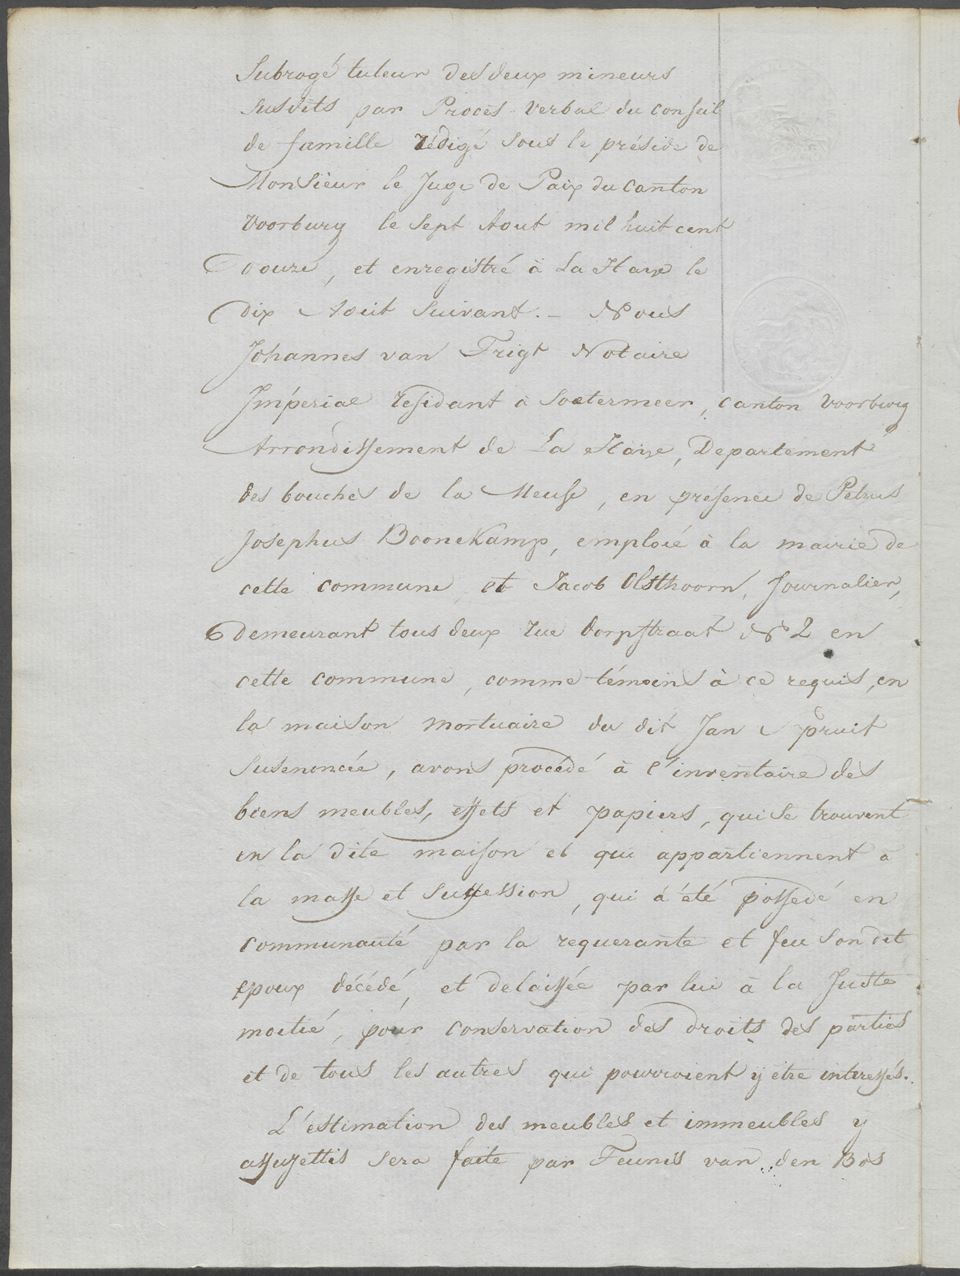 Subrogé tuteur des deux mineurs
susdits par Procès verbal du conseil
de famille rédigé sous le préside de
Monsieur le Juge de Paix du canton
Voorburg le sept Aout mil huit cent
Douze, et enregistré à La Haye le
dix Aout suivant. – Nous
Johannes van Trigt Notaire
Impérial residant à Soetermeer, canton Voorburg
Arrondissement de La Haye, Departement
des bouches de la Meuse, en présence de Petrus
Josephus Boonekamp, emploié à la mairie de
cette commune, et Jacob Olsthoorn, Journalier,
Demeurant tous deux rue Dorpstraat No 2 en
cette commune, comme témoins à ce requis, en
la maison mortuaire du dit Jan Spruit
susenoncée, avons procédé à l'inventaire des
biens meubles, effets et papiers, qui se trouvent
en la dite maison et qui appartiennent a
la masse et Suffession, qui a été possedé en
communauté par la requerante et feu son dit
Epoux décédé, et delaissée par lui à la Juste
moitié, pour conservation des droits des parties
et de tous les autres qui pourroient y etre interessés.
L'estimation des meubles et immeubles y
assujettis sera faite par Teunis van den Bos